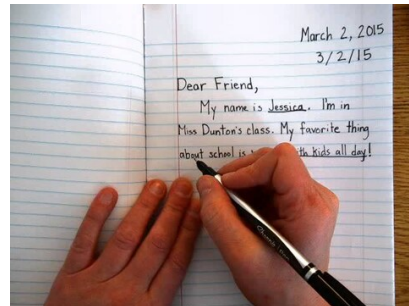 March 2, 2015
3/2/15
Dear Friend,
My name is Jessica. I'm in
Miss Dunton's class. My favorite thing
about school is with kids all day!